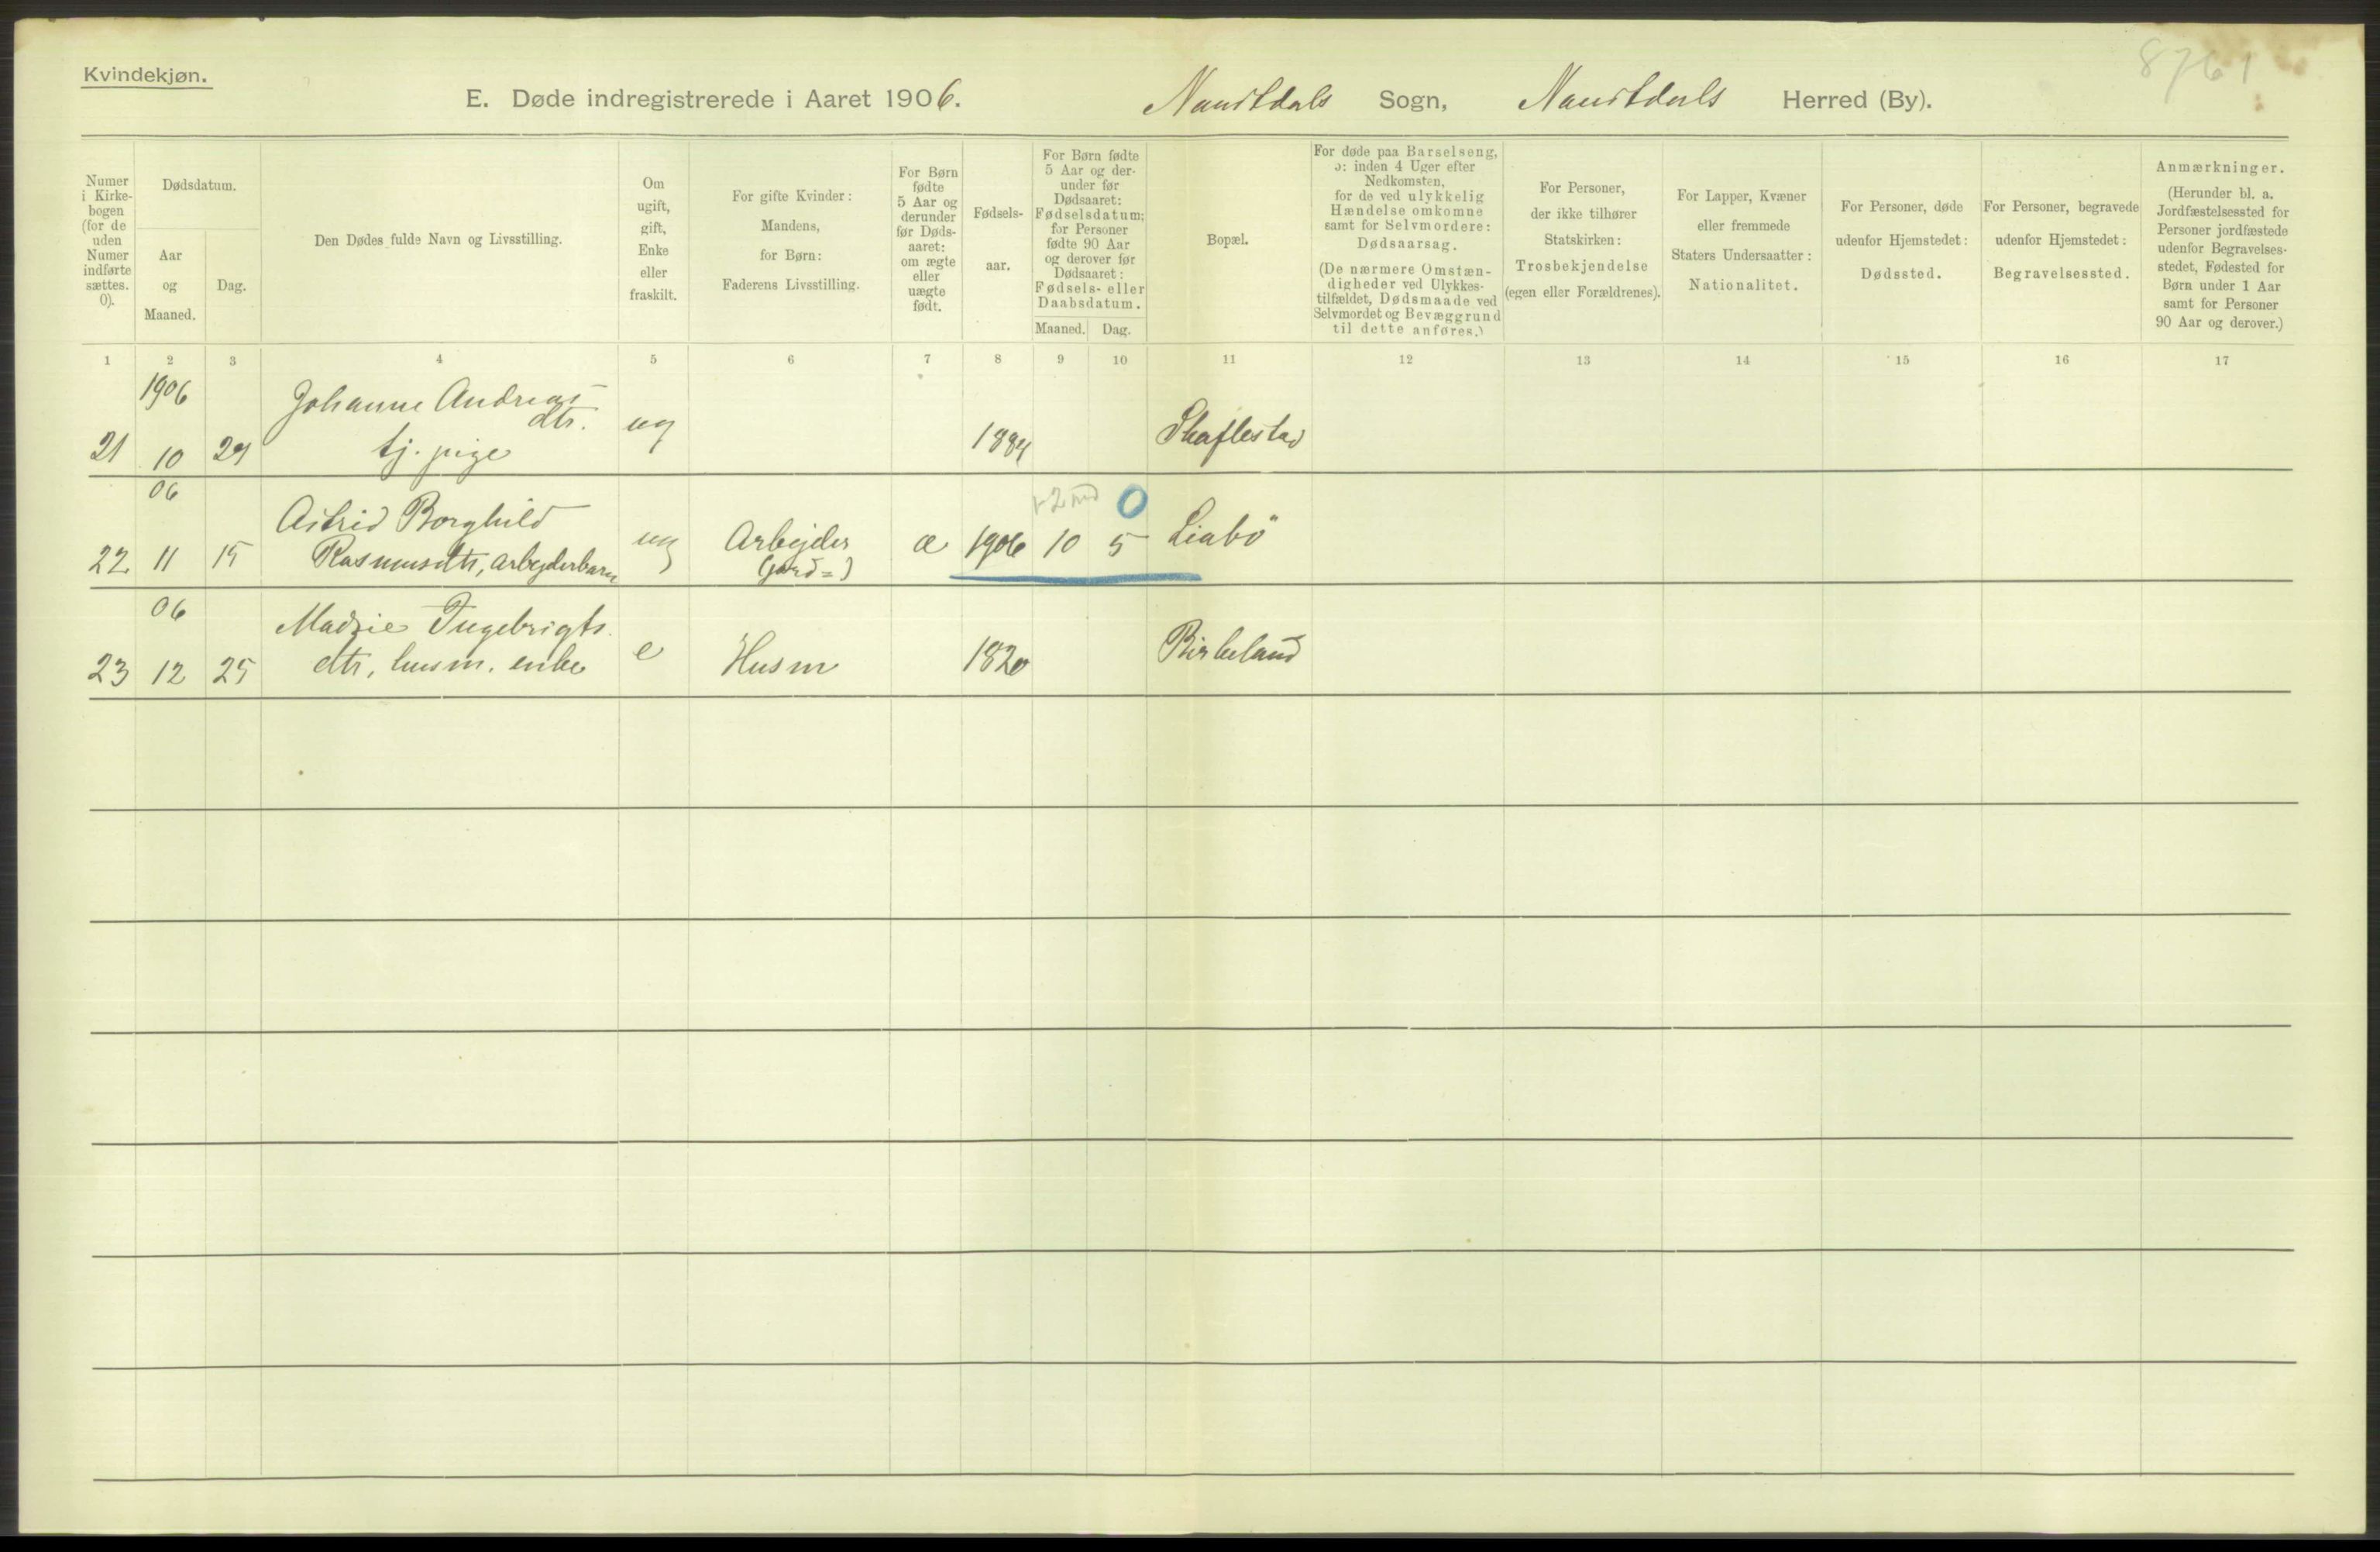 Kvindekjøn.
8761
E. Døde indregistrerede i Aaret 1906. Naustdals Sogn, Naustdals Herred (By).
Numer i Kirke-bogen (for de uden Numer indførte sættes. 0).
Dødsdatum.
Aar og Maaned.
Dag.
Den Dødes fulde Navn og Livsstilling.
Om ugift, gift, Enke eller fraskilt.
For gifte Kvinder: Mandens, for Børn: Faderens Livsstilling.
For Børn fødte 5 Aar og derunder før Døds-aaret: om ægte eller uægte født.
Fødsels-aar.
For Børn fødte 5 Aar og der-under før Dødsaaret: Fødselsdatum; for Personer fødte 90 Aar og derover før Dødsaaret: Fødsels- eller Daabsdatum.
Maaned. Dag.
Bopæl.
For døde paa Barselseng, ɔ: inden 4 Uger efter Nedkomsten, for de ved ulykkelig Hændelse omkomne samt for Selvmordere: Dødsaarsag.
(De nærmere Omstæn-digheder ved Ulykkes-tilfældet, Dødsmaade ved Selvmordet og Bevæggrund til dette anføres.)
For Personer, der ikke tilhører Statskirken: Trosbekjendelse (egen eller Forældrenes).
For Lapper, Kvæner eller fremmede Staters Undersaatter: Nationalitet.
For Personer, døde udenfor Hjemstedet: Dødssted.
For Personer, begravede udenfor Hjemstedet: Begravelsessted.
Anmærkninger.
(Herunder bl. a. Jordfæstelsessted for Personer jordfæstede udenfor Begravelses-stedet, Fødested for Børn under 1 Aar samt for Personer 90 Aar og derover.)
1 2 3 4 5 6 7 8 9 10 11 12 13 14 15 16 17
1906 Johanne Andreas
dtr.
21 10 29 tj. pige ug 1884 Skaflestad
06 Astrid Borghild 1-2 md 0
22 11 15 Rasmusdtr, arbejderbarn ug Arbejder æ 1906 10 5 Liabö
(jord=)
06 Madsie Ingebrigts
23 12 25 dtr, husm. enke e Husm 1820 Birkeland